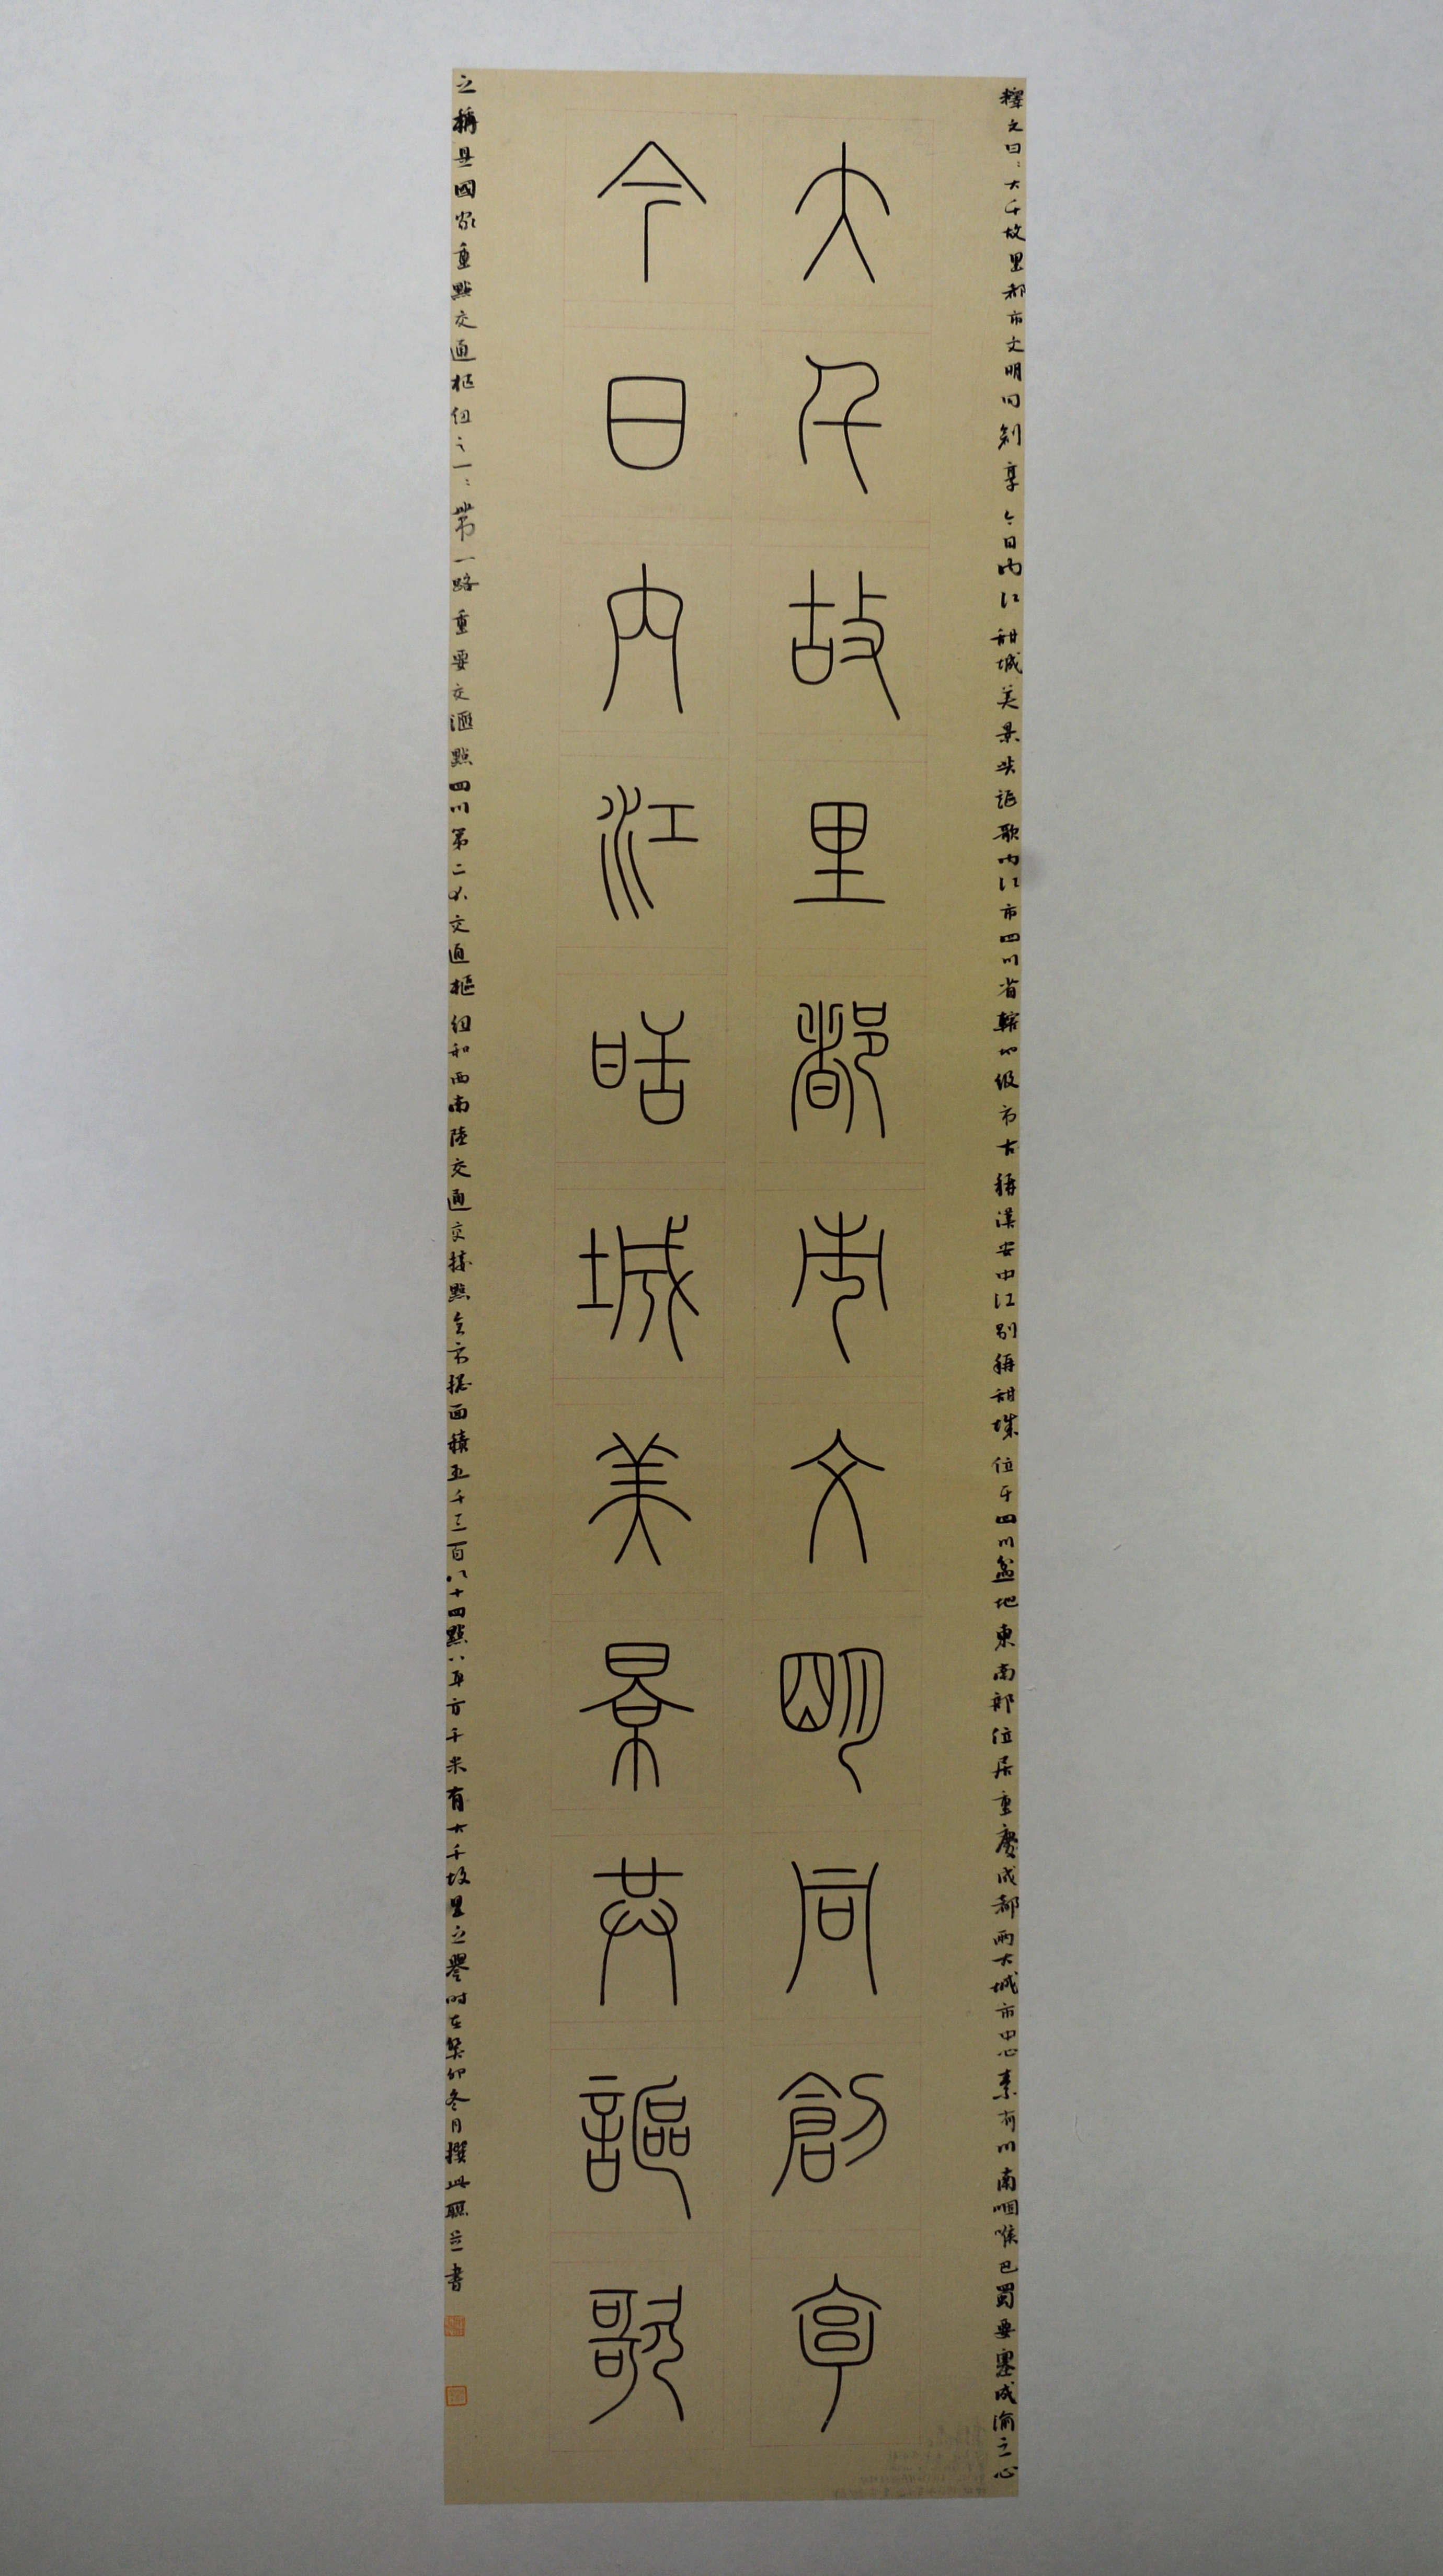 釋文曰：大千故里都市文明同創享今日內江甜城美景共謳歌內江市四川省轄地級市古稱漢安中江別稱甜城位于四川盆地東南部位居重慶成都兩大城市中心素有川南咽喉巴蜀要塞成渝之心
大千故里都市文明同創享
今日內江甜城美景共謳歌
之稱是國家重點交通樞紐之一：帶一路重要交匯點四川第二大交通樞紐和西南陸交通交接點全市總面積五千三百八十四點八平方千米有大千故里之譽時在癸卯冬月撰此聯並書